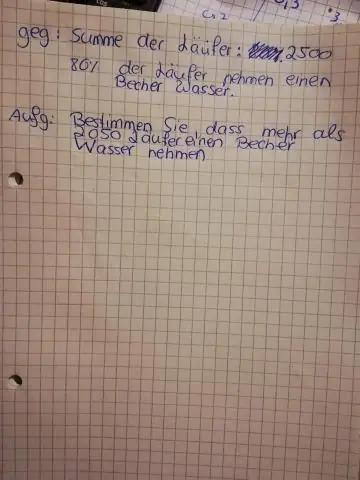 Cs 2
0,3
3
geg: Summe der Läufer: 2500
80% der Läufer nehmen einen
Becher Wasser.
Aufg: Bestimmen Sie, dass mehr als
2050 Läufer einen Becher
Wasser nehmen